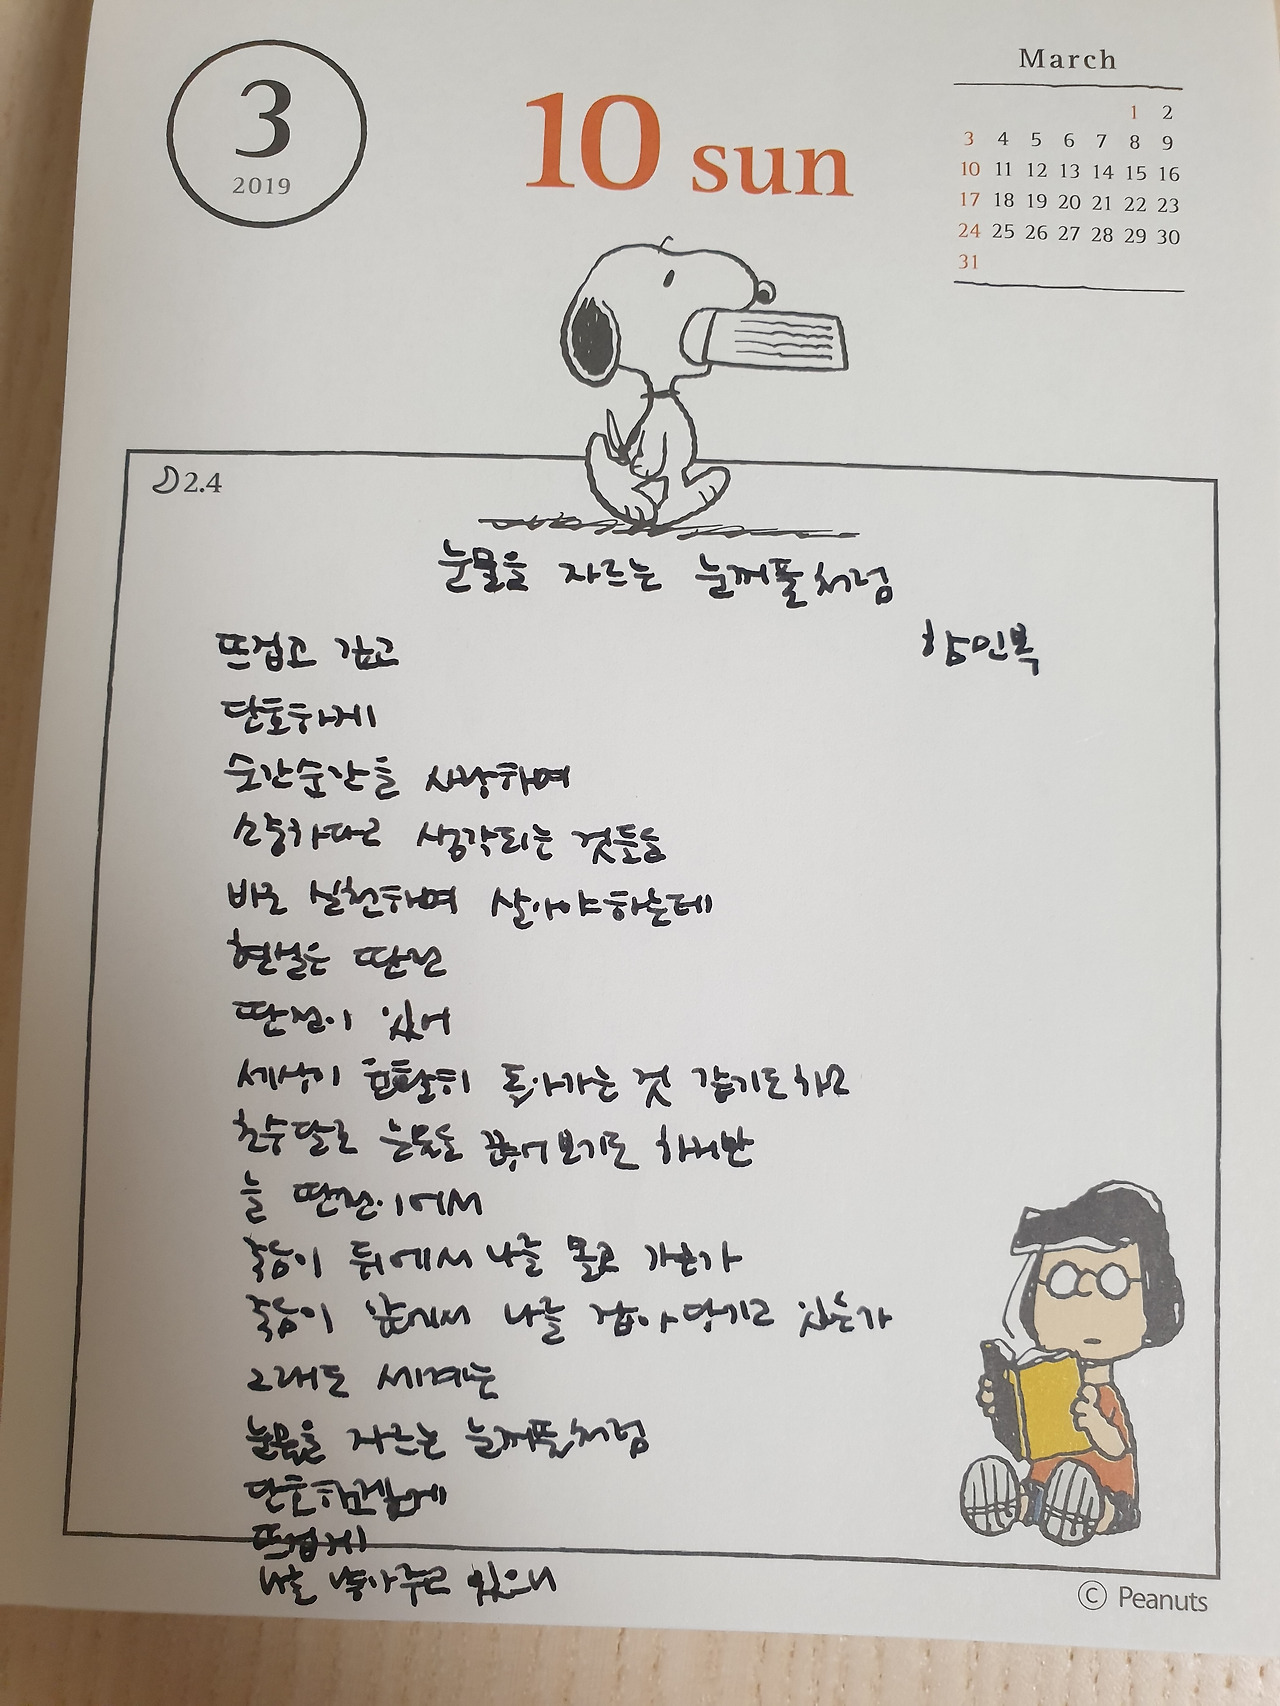 3
2019
10 sun
March
1 2
3 4 5 6 7 8 9
10 11 12 13 14 15 16
17 18 19 20 21 22 23
24 25 26 27 28 29 30
31
2.4
눈물을 자르는 눈꺼풀처럼
함민복
뜨겁고 깊고
단호하게
순간순간을 사랑하며
소중하다고 생각되는 것들을
바로 실천하며 살아야하는데
현실은 딴전
딴전이 있어
세상이 윤활히 돌아가는 것 같기도하고
초승달로 눈물을 끊어보기도 하지만
늘 딴전이어서
죽음이 뒤에서 나를 몰고 가는가
죽음이 앞에서 나를 잡아당기고 있는가
그래도 세계는
눈물을 자르는 눈꺼풀처럼
단호하게
뜨겁게
나를 낳아주고 있으니
© Peanuts